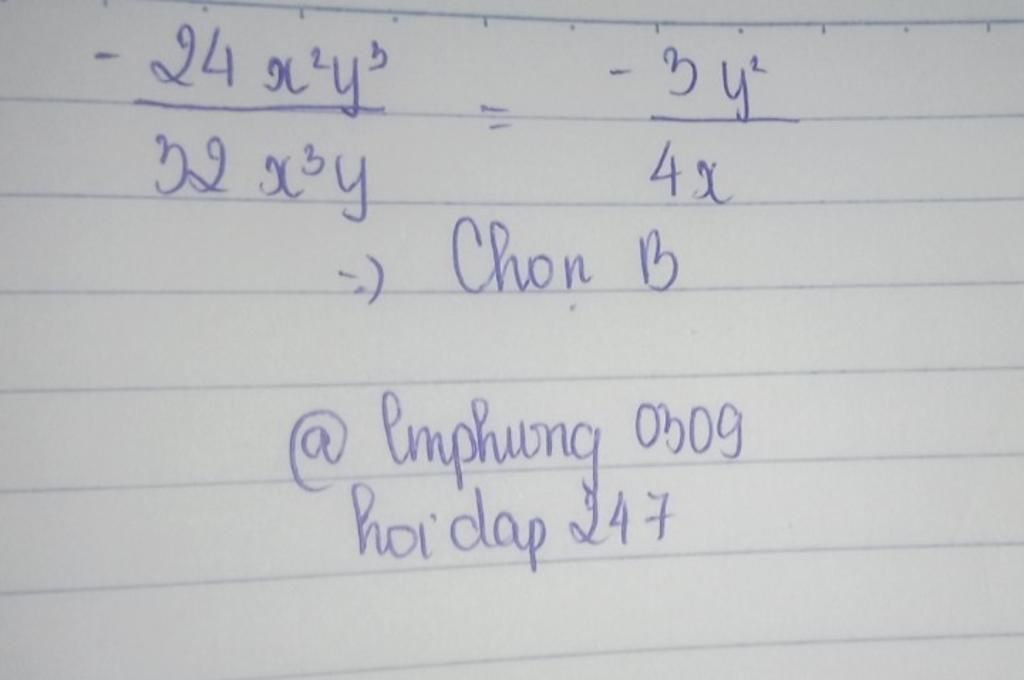 - 24 x²y³ / 32 x³y = - 3 y² / 4x
=) Chọn B
@ lmphung 0309
hoidap 247